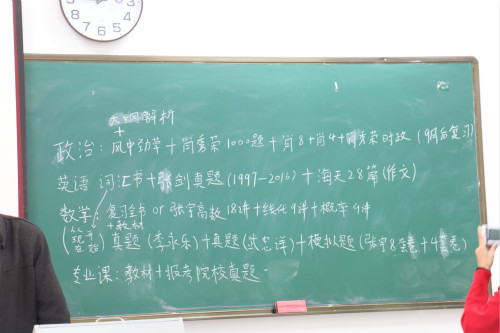 大纲解析
+
政治:风中劲草+肖秀荣1000题+肖8+肖4+肖秀荣时政(9月后复习)
英语 词汇书+张剑真题(1997-2016)+海天28篇(作文)
数学:复习全书 or 张宇高数18讲+线代9讲+概率9讲
+教材
(从现在开始) 真题(李永乐)+真题(武忠祥)+模拟题(张宇8套卷+4套卷)
专业课:教材+报考院校真题